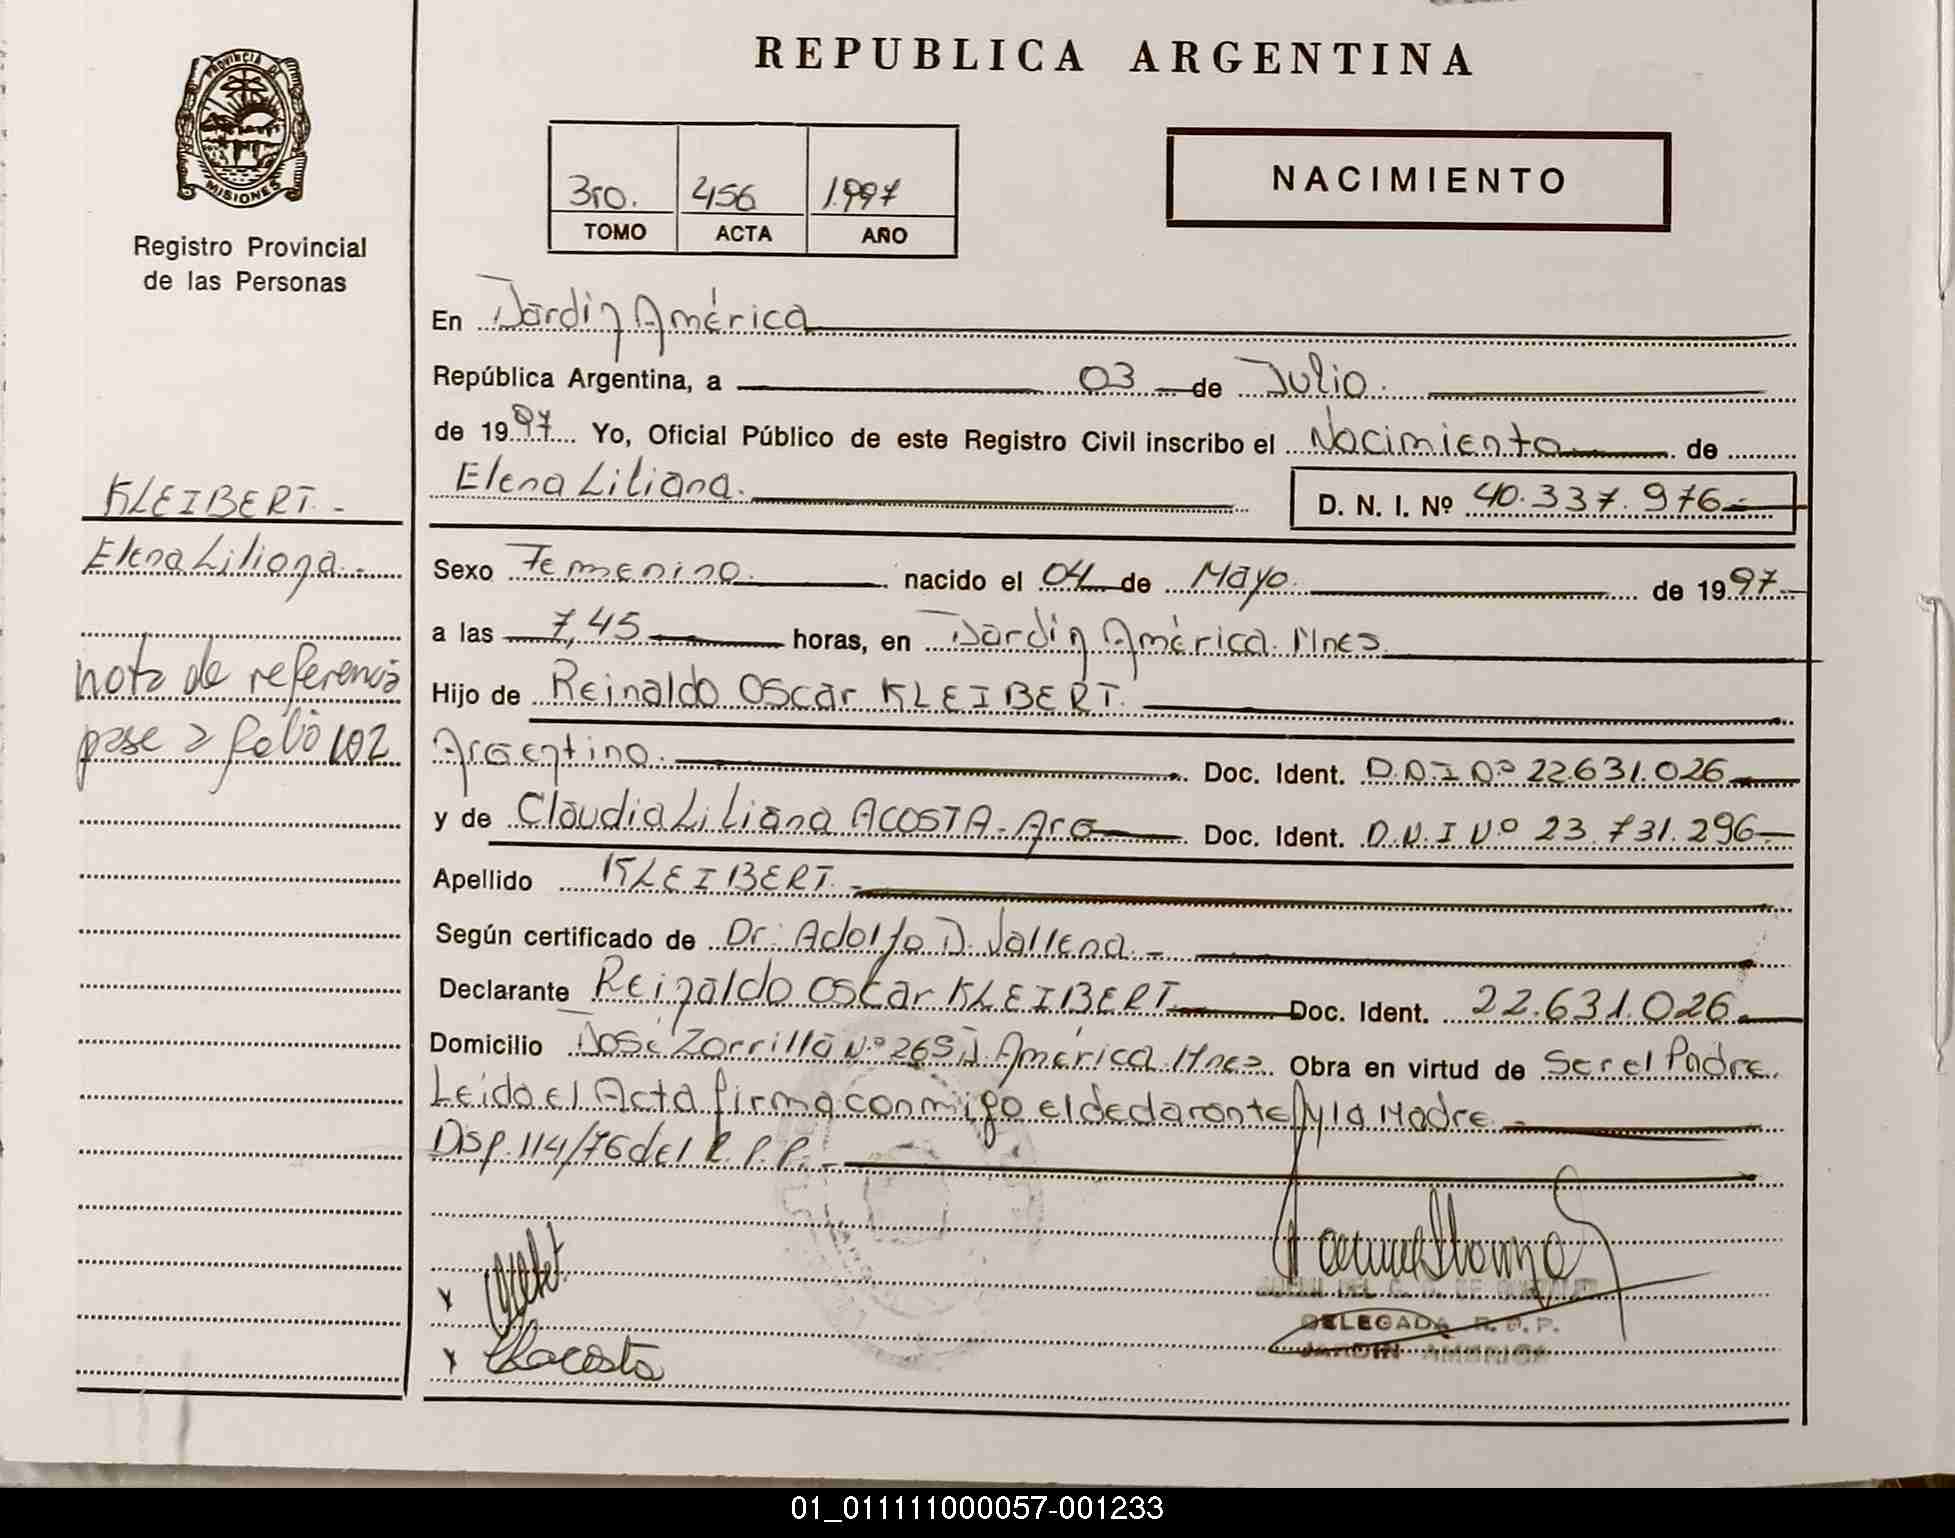 REPUBLICA ARGENTINA
PROVINCIA DE
MISIONES
Registro Provincial
de las Personas
3ro. 456 1.997
TOMO ACTA AÑO
NACIMIENTO
KLEIBERT.-
Elena Liliana.-
nota de referencia
pase a folio 102
En Jardin América
República Argentina, a 03 de Julio.
de 1997 Yo, Oficial Público de este Registro Civil inscribo el Nacimiento de
Elena Liliana. D. N. I. Nº 40.337.976-
Sexo Femenino. nacido el 04 de Mayo. de 1997-
a las 7,45 horas, en Jardin América. Mnes.
Hijo de Reinaldo Oscar KLEIBERT.
Argentino. Doc. Ident. D.N.I Nº 22.631.026
y de Claudia Liliana ACOSTA-Arg Doc. Ident. D.N.I Nº 23.731.296-
Apellido KLEIBERT.-
Según certificado de Dr. Adolfo D. Vallena.-
Declarante Reinaldo Oscar KLEIBERT Doc. Ident. 22.631.026
Domicilio José Zorrilla Nº 265 J. América. Mnes. Obra en virtud de Ser el Padre.
Leida el Acta firma conmigo el declarante y la Madre.-
Disp. 114/76 del R.P.P.-
x
x Acosta
DELEGADA R.P.P.
JARDIN AMERICA
01_011111000057-001233